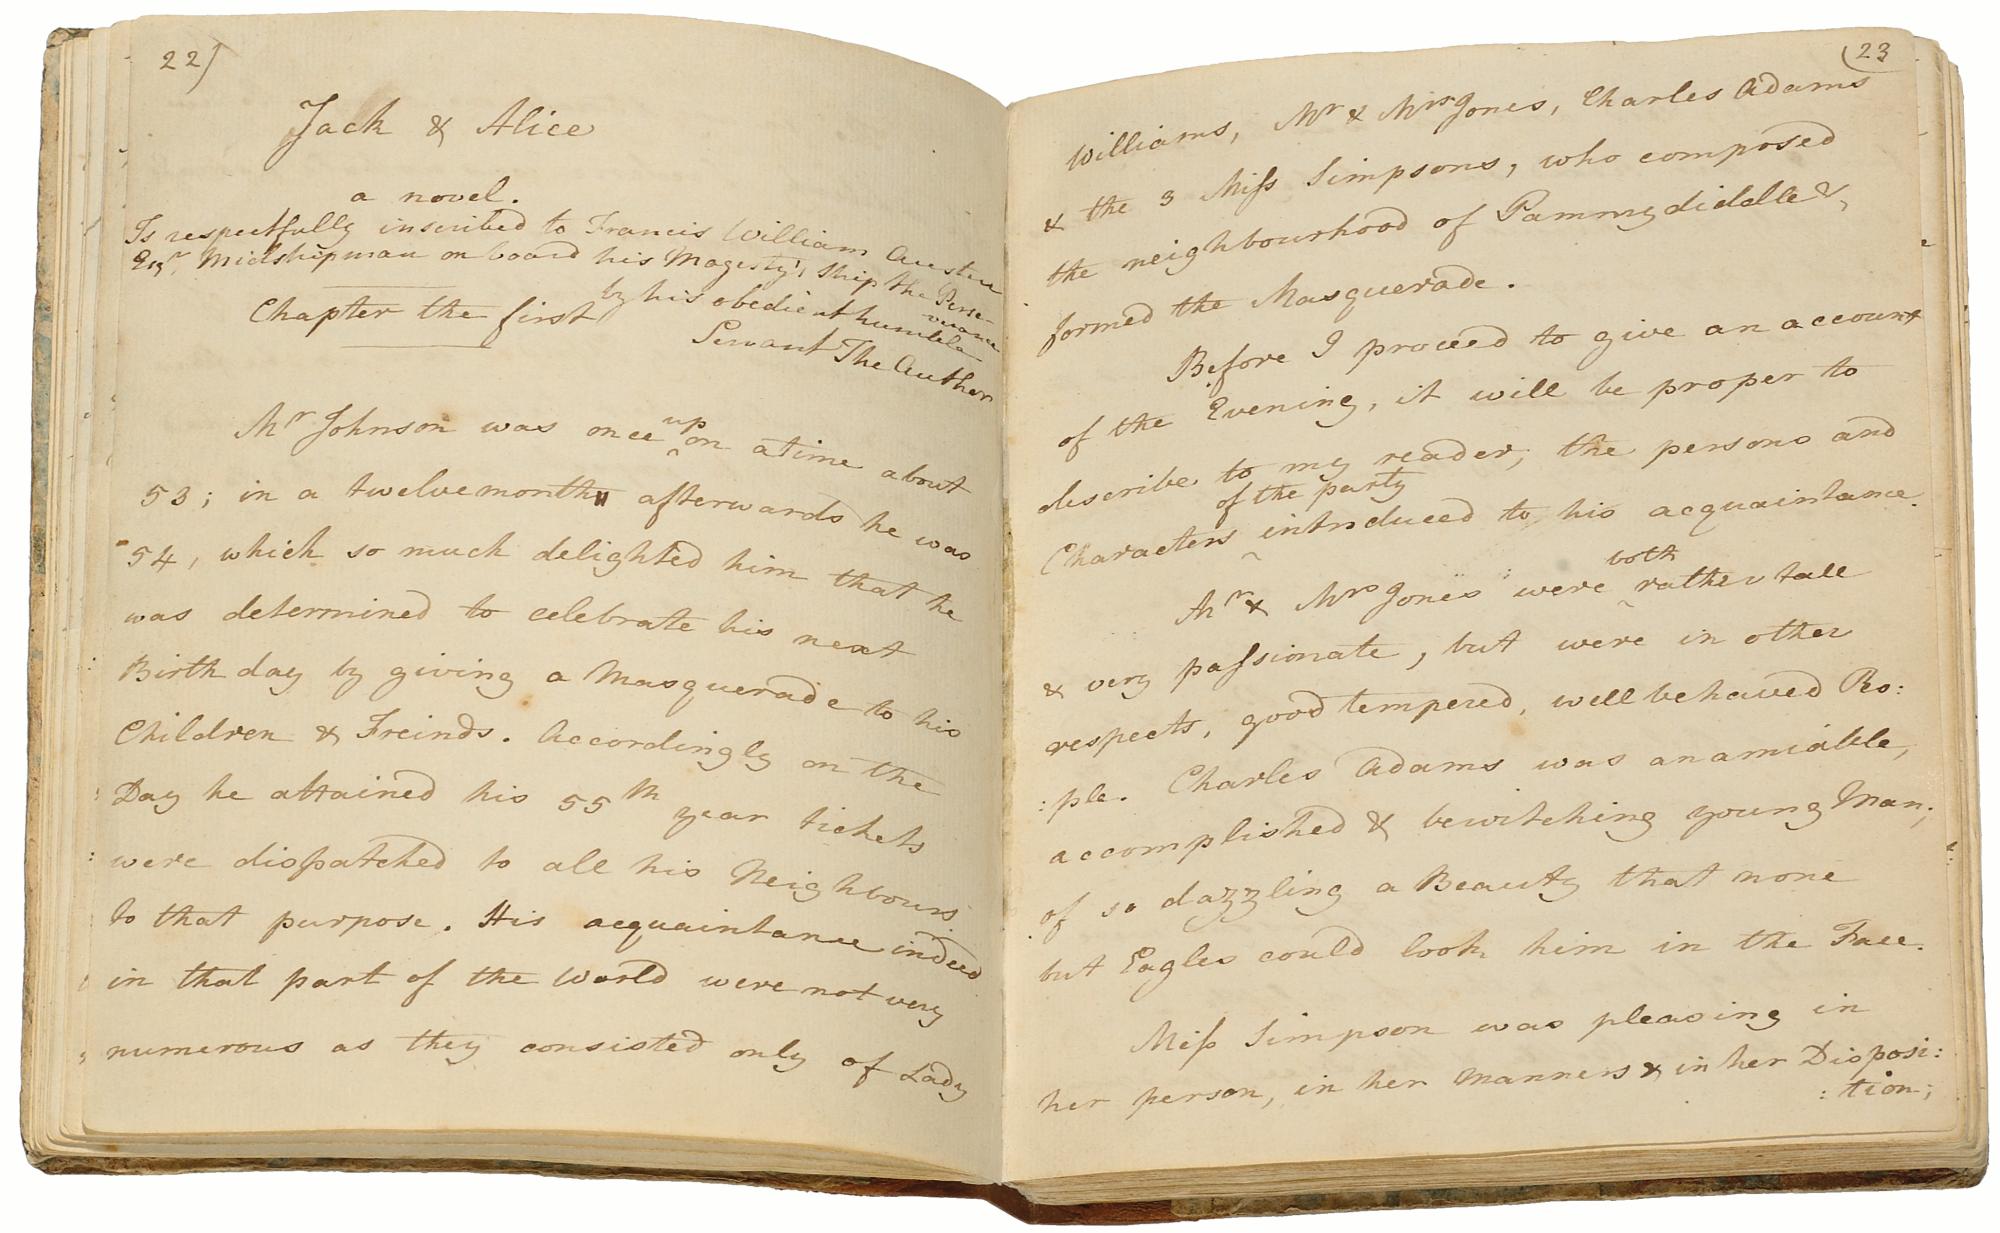 22)
Jack & Alice
a novel.
Is respectfully inscribed to Francis William Austen
Esqr, Midshipman on board his Magesty's Ship the Perse-
verance
by his obedient humble
Servant The Author
Chapter the first
Mr Johnson was once upon a time about
53; in a twelvemonth afterwards he was
54, which so much delighted him that he
was determined to celebrate his next
Birth day by giving a Masquerade to his
Children & Freinds. Accordingly on the
Day he attained his 55th year tickets
were dispatched to all his Neighbours
to that purpose. His acquaintance indeed
in that part of the World were not very
numerous as they consisted only of Lady
(23
Williams, Mr & Mrs Jones, Charles Adams
& the 3 Miss Simpsons, who composed
the neighbourhood of Pammydiddle &
formed the Masquerade.
Before I proceed to give an account
of the Evening, it will be proper to
describe to my reader, the persons and
of the party
Characters introduced to his acquaintance.
both
Mr & Mrs Jones were rather tall
& very passionate, but were in other
respects, good tempered, wellbehaved Peo:
:ple. Charles Adams was an amiable,
accomplished & bewitching young Man;
of so dazzling a Beauty that none
but Eagles could look him in the Face.
Miss Simpson was pleasing in
her person, in her Manners & in her Disposi:
:tion;